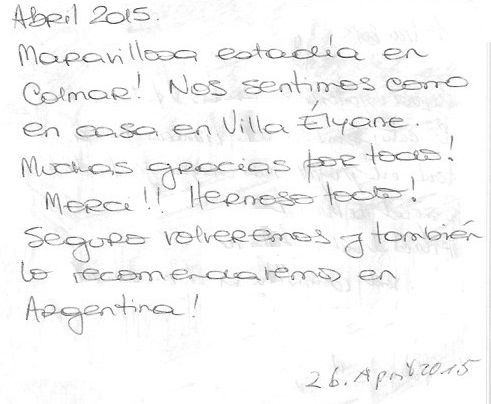 Abril 2015.
Maravillosa estadía en
Colmar! Nos sentimos como
en casa en Villa Élyane.
Muchas gracias por todo!
Merci!! Hermoso todo!
Seguro volveremos y también
lo recomendaremos en
Argentina!
26. April 2015